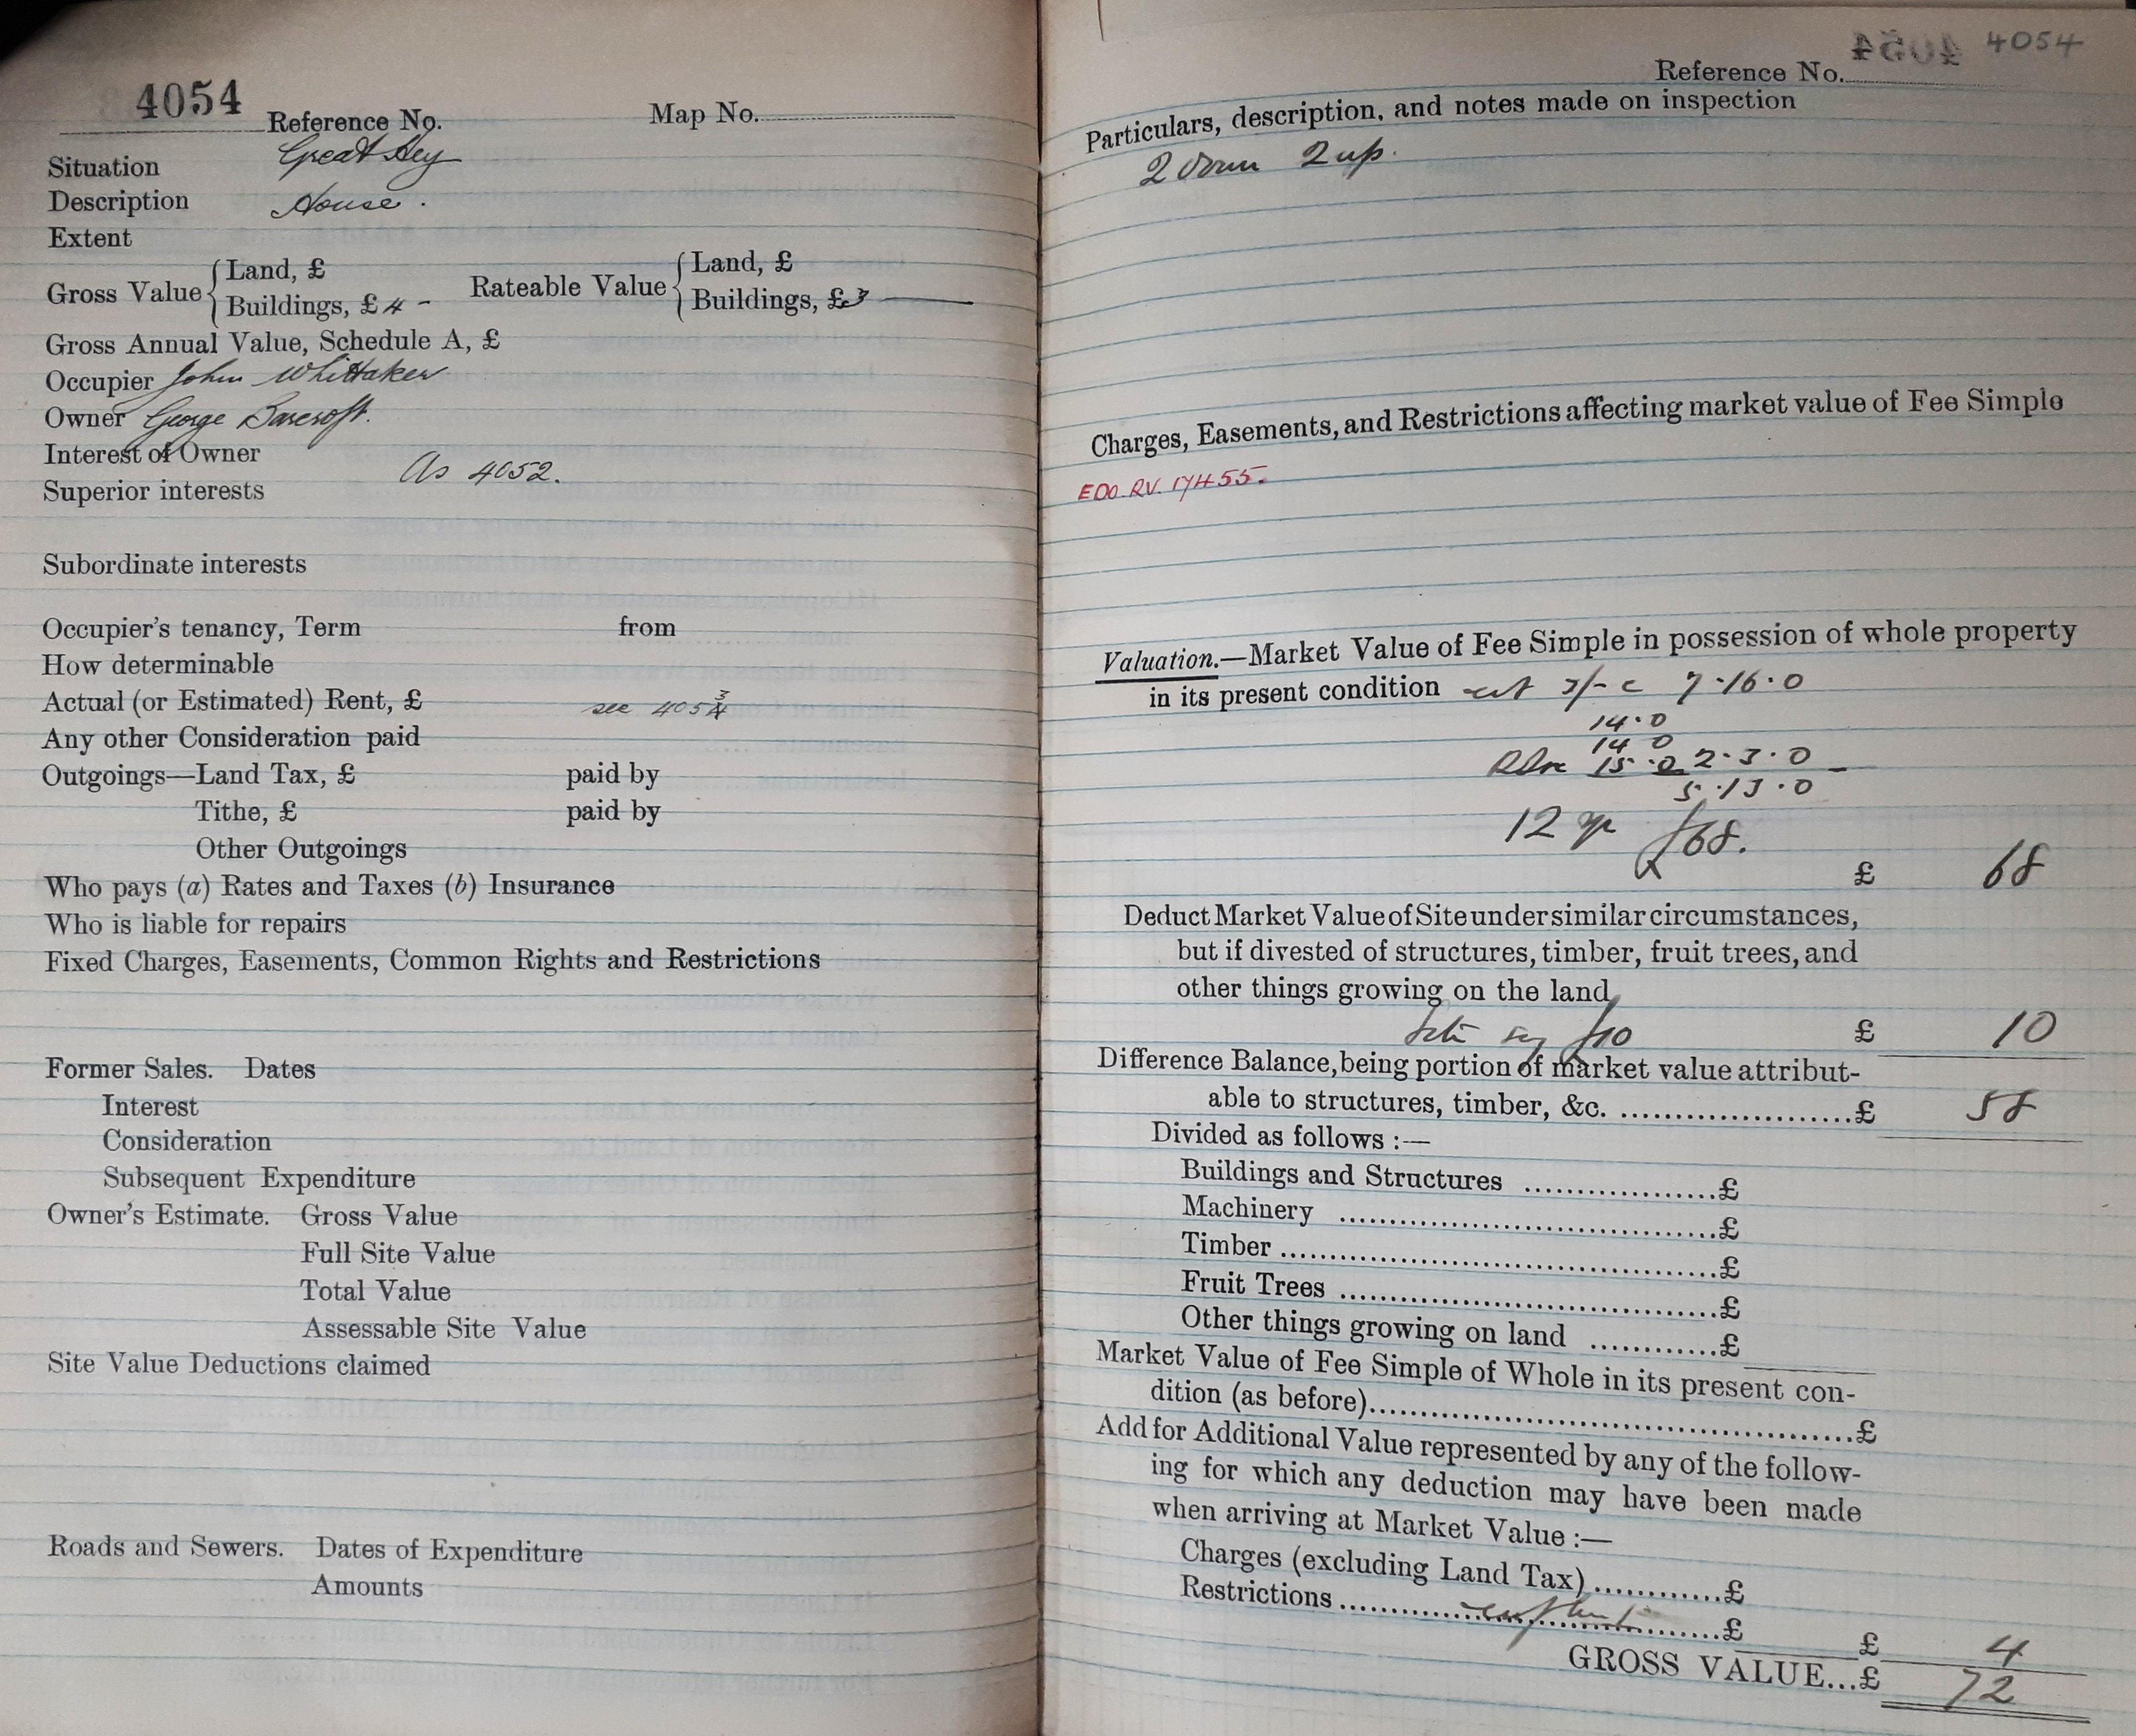 4054
Reference No.
Map No.
Situation Great Hey
Description House.
Extent
Gross Value { Land, £
Buildings, £ 4 -
Rateable Value { Land, £
Buildings, £ 3
Gross Annual Value, Schedule A, £
Occupier John Whittaker
Owner George Barcroft.
Interest of Owner
As 4052.
Superior interests
Subordinate interests
Occupier's tenancy, Term from
How determinable
Actual (or Estimated) Rent, £ see 4053
Any other Consideration paid
Outgoings—Land Tax, £ paid by
Tithe, £ paid by
Other Outgoings
Who pays (a) Rates and Taxes (b) Insurance
Who is liable for repairs
Fixed Charges, Easements, Common Rights and Restrictions
Former Sales. Dates
Interest
Consideration
Subsequent Expenditure
Owner's Estimate. Gross Value
Full Site Value
Total Value
Assessable Site Value
Site Value Deductions claimed
Roads and Sewers. Dates of Expenditure
Amounts
4054
Reference No.
Particulars, description, and notes made on inspection
2 down 2 up.
Charges, Easements, and Restrictions affecting market value of Fee Simple
EDO. RV. 17455.
Valuation.—Market Value of Fee Simple in possession of whole property
in its present condition 3/- 7.16.0
14.0
14 0
15.0 2.3.0
5.13.0
12 yp £68.
£ 68
Deduct Market Value of Site under similar circumstances,
but if divested of structures, timber, fruit trees, and
other things growing on the land
Site say £10
£ 10
Difference Balance, being portion of market value attribut-
able to structures, timber, &c. ....................£ 58
Divided as follows :—
Buildings and Structures ...................£
Machinery ...................£
Timber ...................£
Fruit Trees ...................£
Other things growing on land ............£
Market Value of Fee Simple of Whole in its present con-
dition (as before)...................£
Add for Additional Value represented by any of the follow-
ing for which any deduction may have been made
when arriving at Market Value :—
Charges (excluding Land Tax) ............£
Restrictions ...................£
£ 4
GROSS VALUE...£ 72